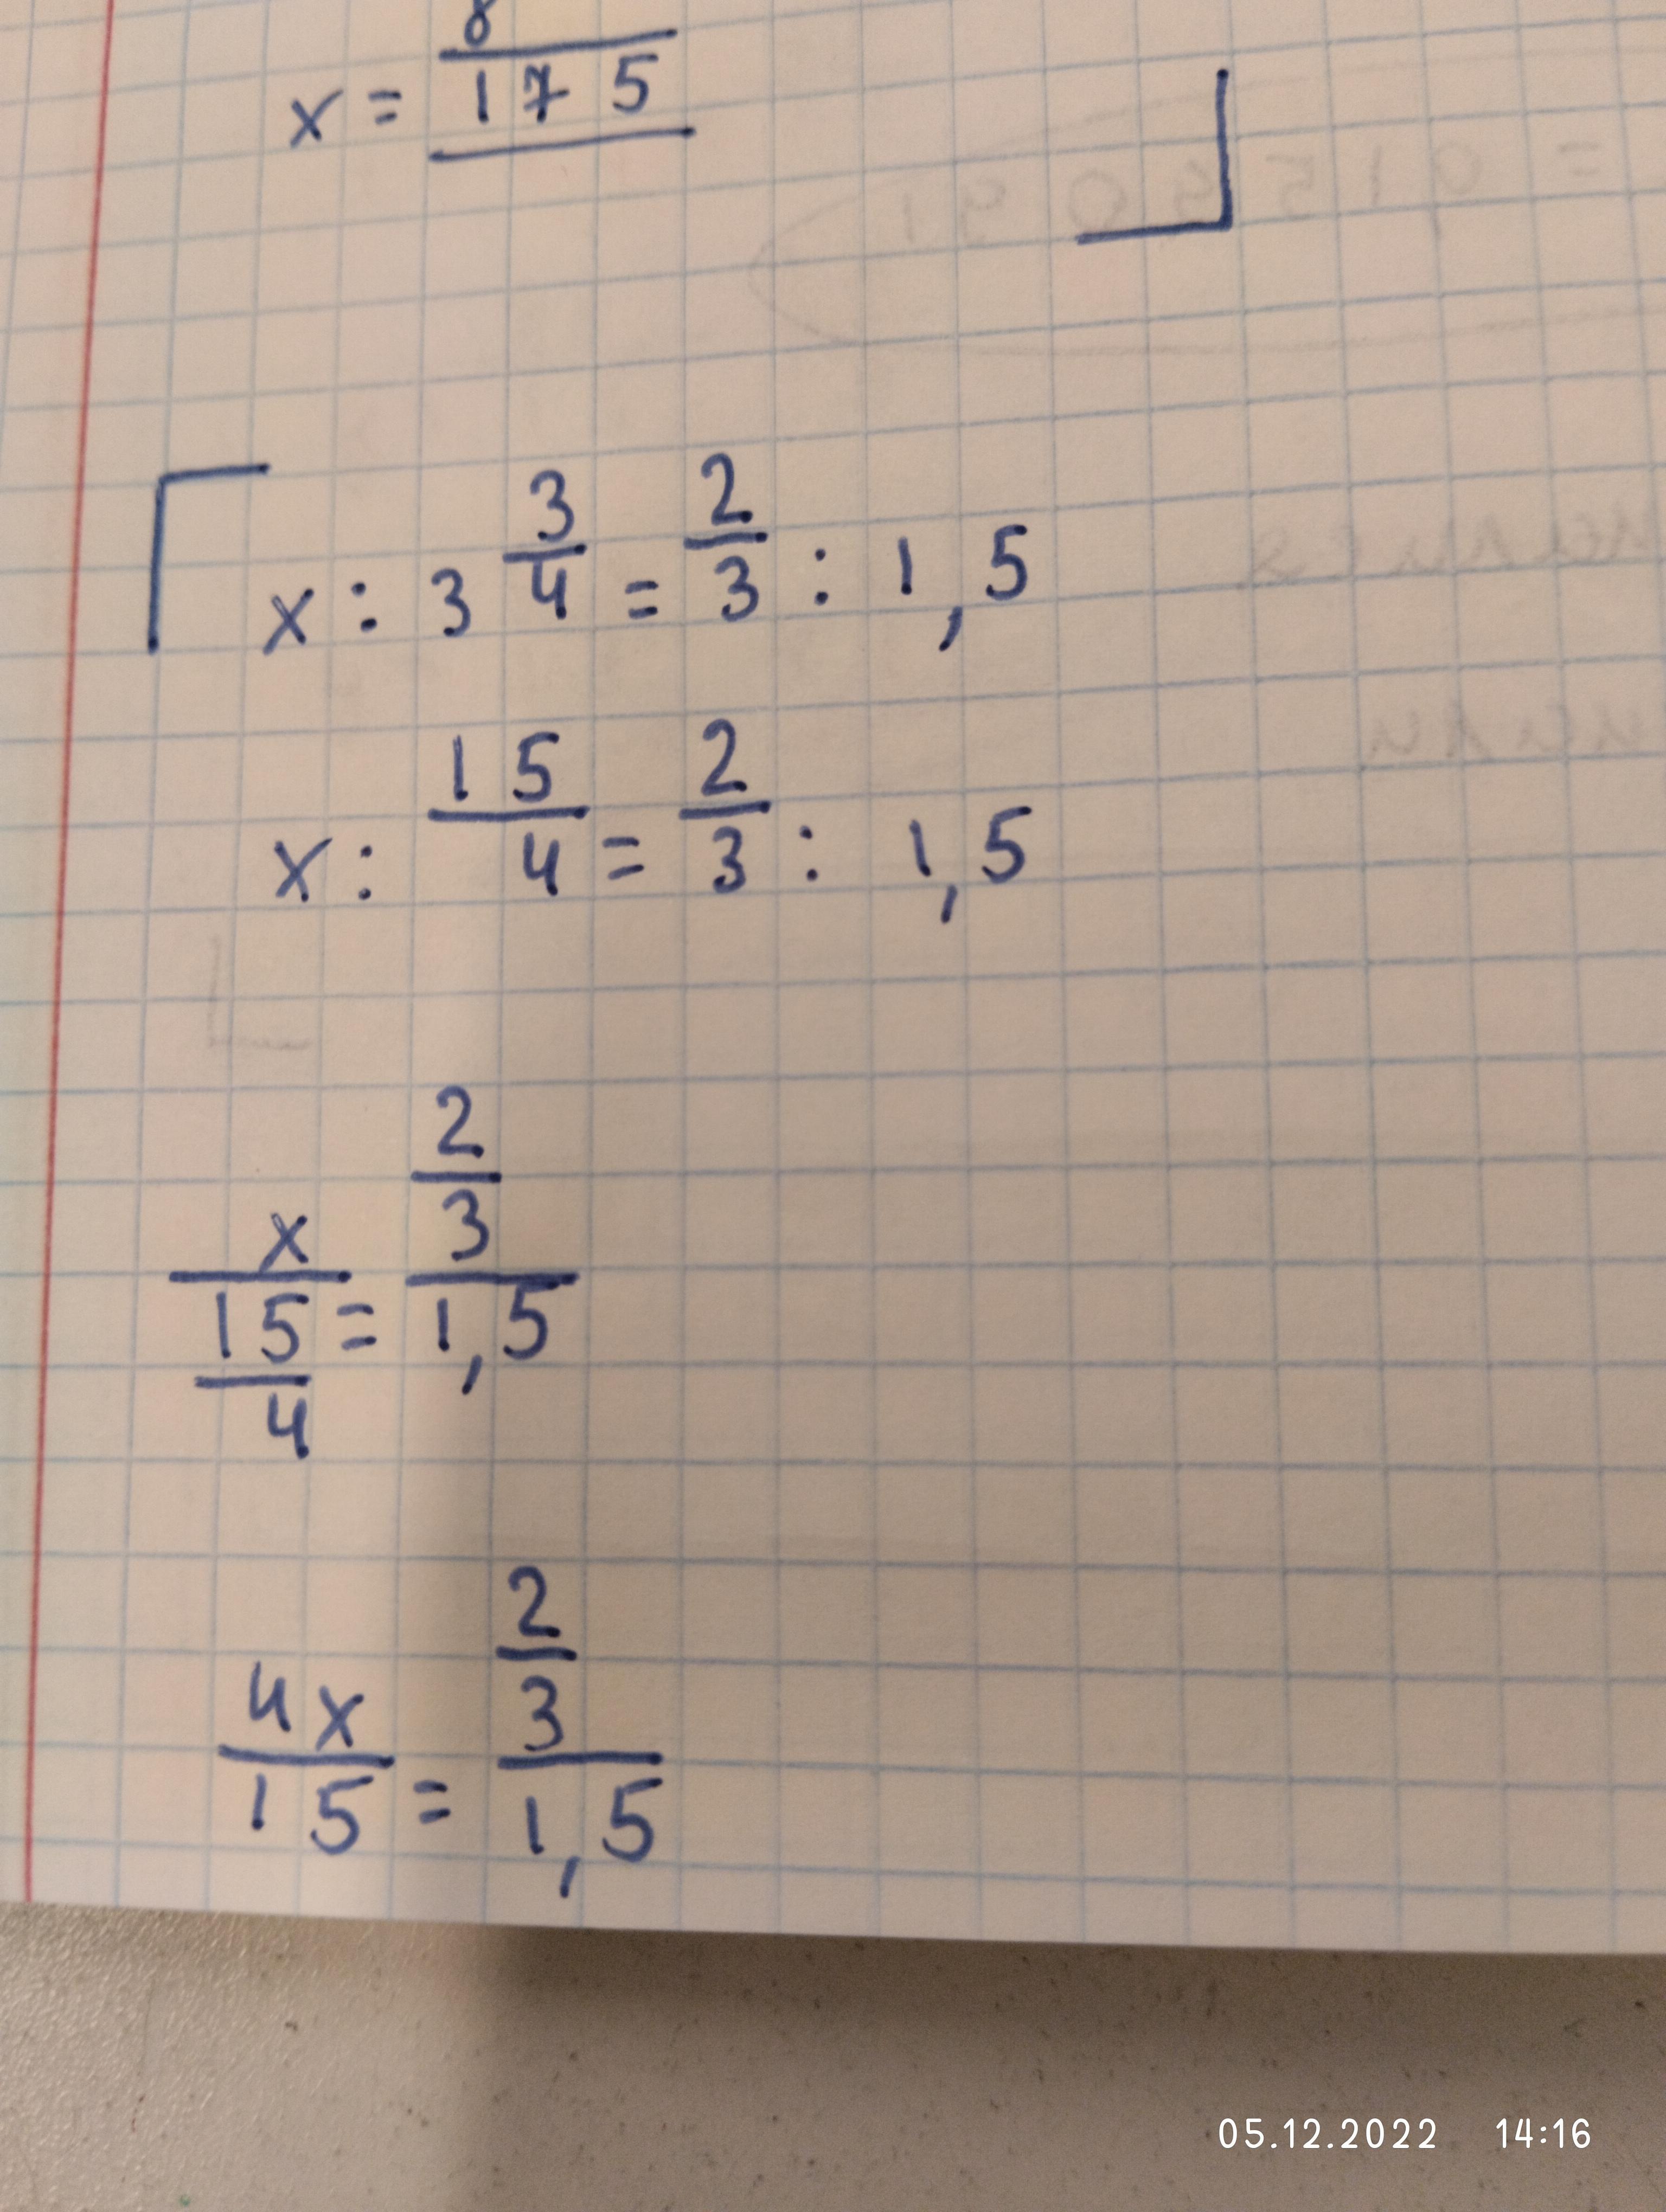 8
x = 175
x : 3 3/4 = 2/3 : 1,5
x : 15/4 = 2/3 : 1,5
x/(15/4) = (2/3)/1,5
4x/15 = (2/3)/1,5
05.12.2022 14:16